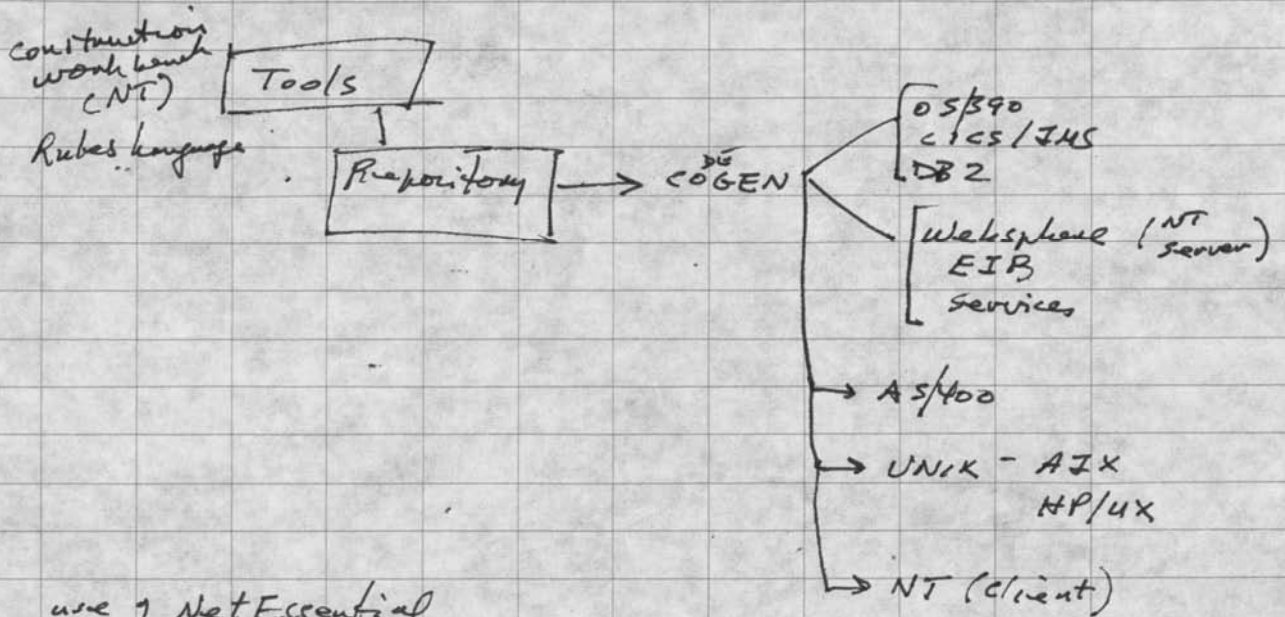 construction
workbench
(NT)
Rules Language
Tools
Repository
CODEGEN
OS/390
CICS/IMS
DB2
Websphere (NT server)
EJB
services
AS/400
UNIX - AIX
HP/UX
NT (Client)
use of NetEssential